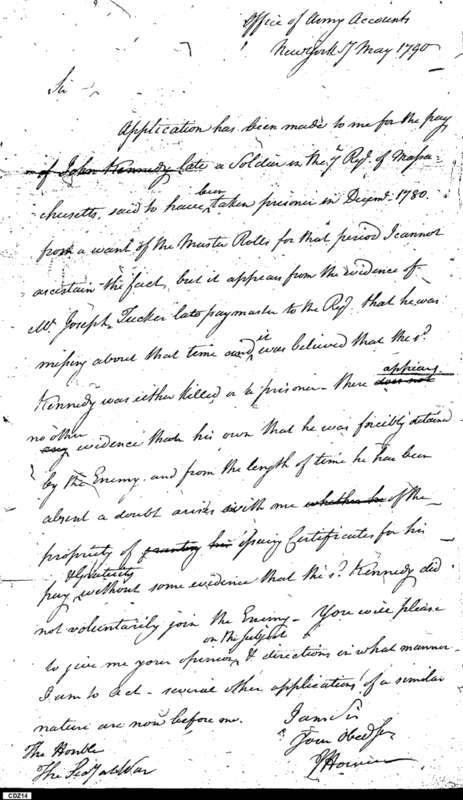 Office of Army Accounts
New york 17 May 1790
Sir
Application has been made to me for the pay
of John Kennedy late a Soldier in the 7 Regt. of Massa
chusetts, said to have been taken prisoner in Decemr. 1780.
from a want of the Muster Rolls for that period I cannot
ascertain the fact, but it appears from the evidence of
Mr. Joseph Tucker late paymaster to the Regt. that he was
missing about that time and it was believed that the sd.
Kennedy was either killed or a prisoner - there appears does not
no other any evidence than his own that he was forcibly detained
by the Enemy and from the length of time he has been
absent a doubt arises with me whether he of the
propriety of granting his issuing Certificates for his
pay & gratuity without some evidence that the sd. Kennedy did
not voluntarily join the Enemy - You will please
to give me your opinion on the subject & directions in what manner
I am to act - several other applications of a similar
nature are now before me.
I am Sir
Your Obed Ser
The Honble
The Secy at War
J Howell
CDZ14